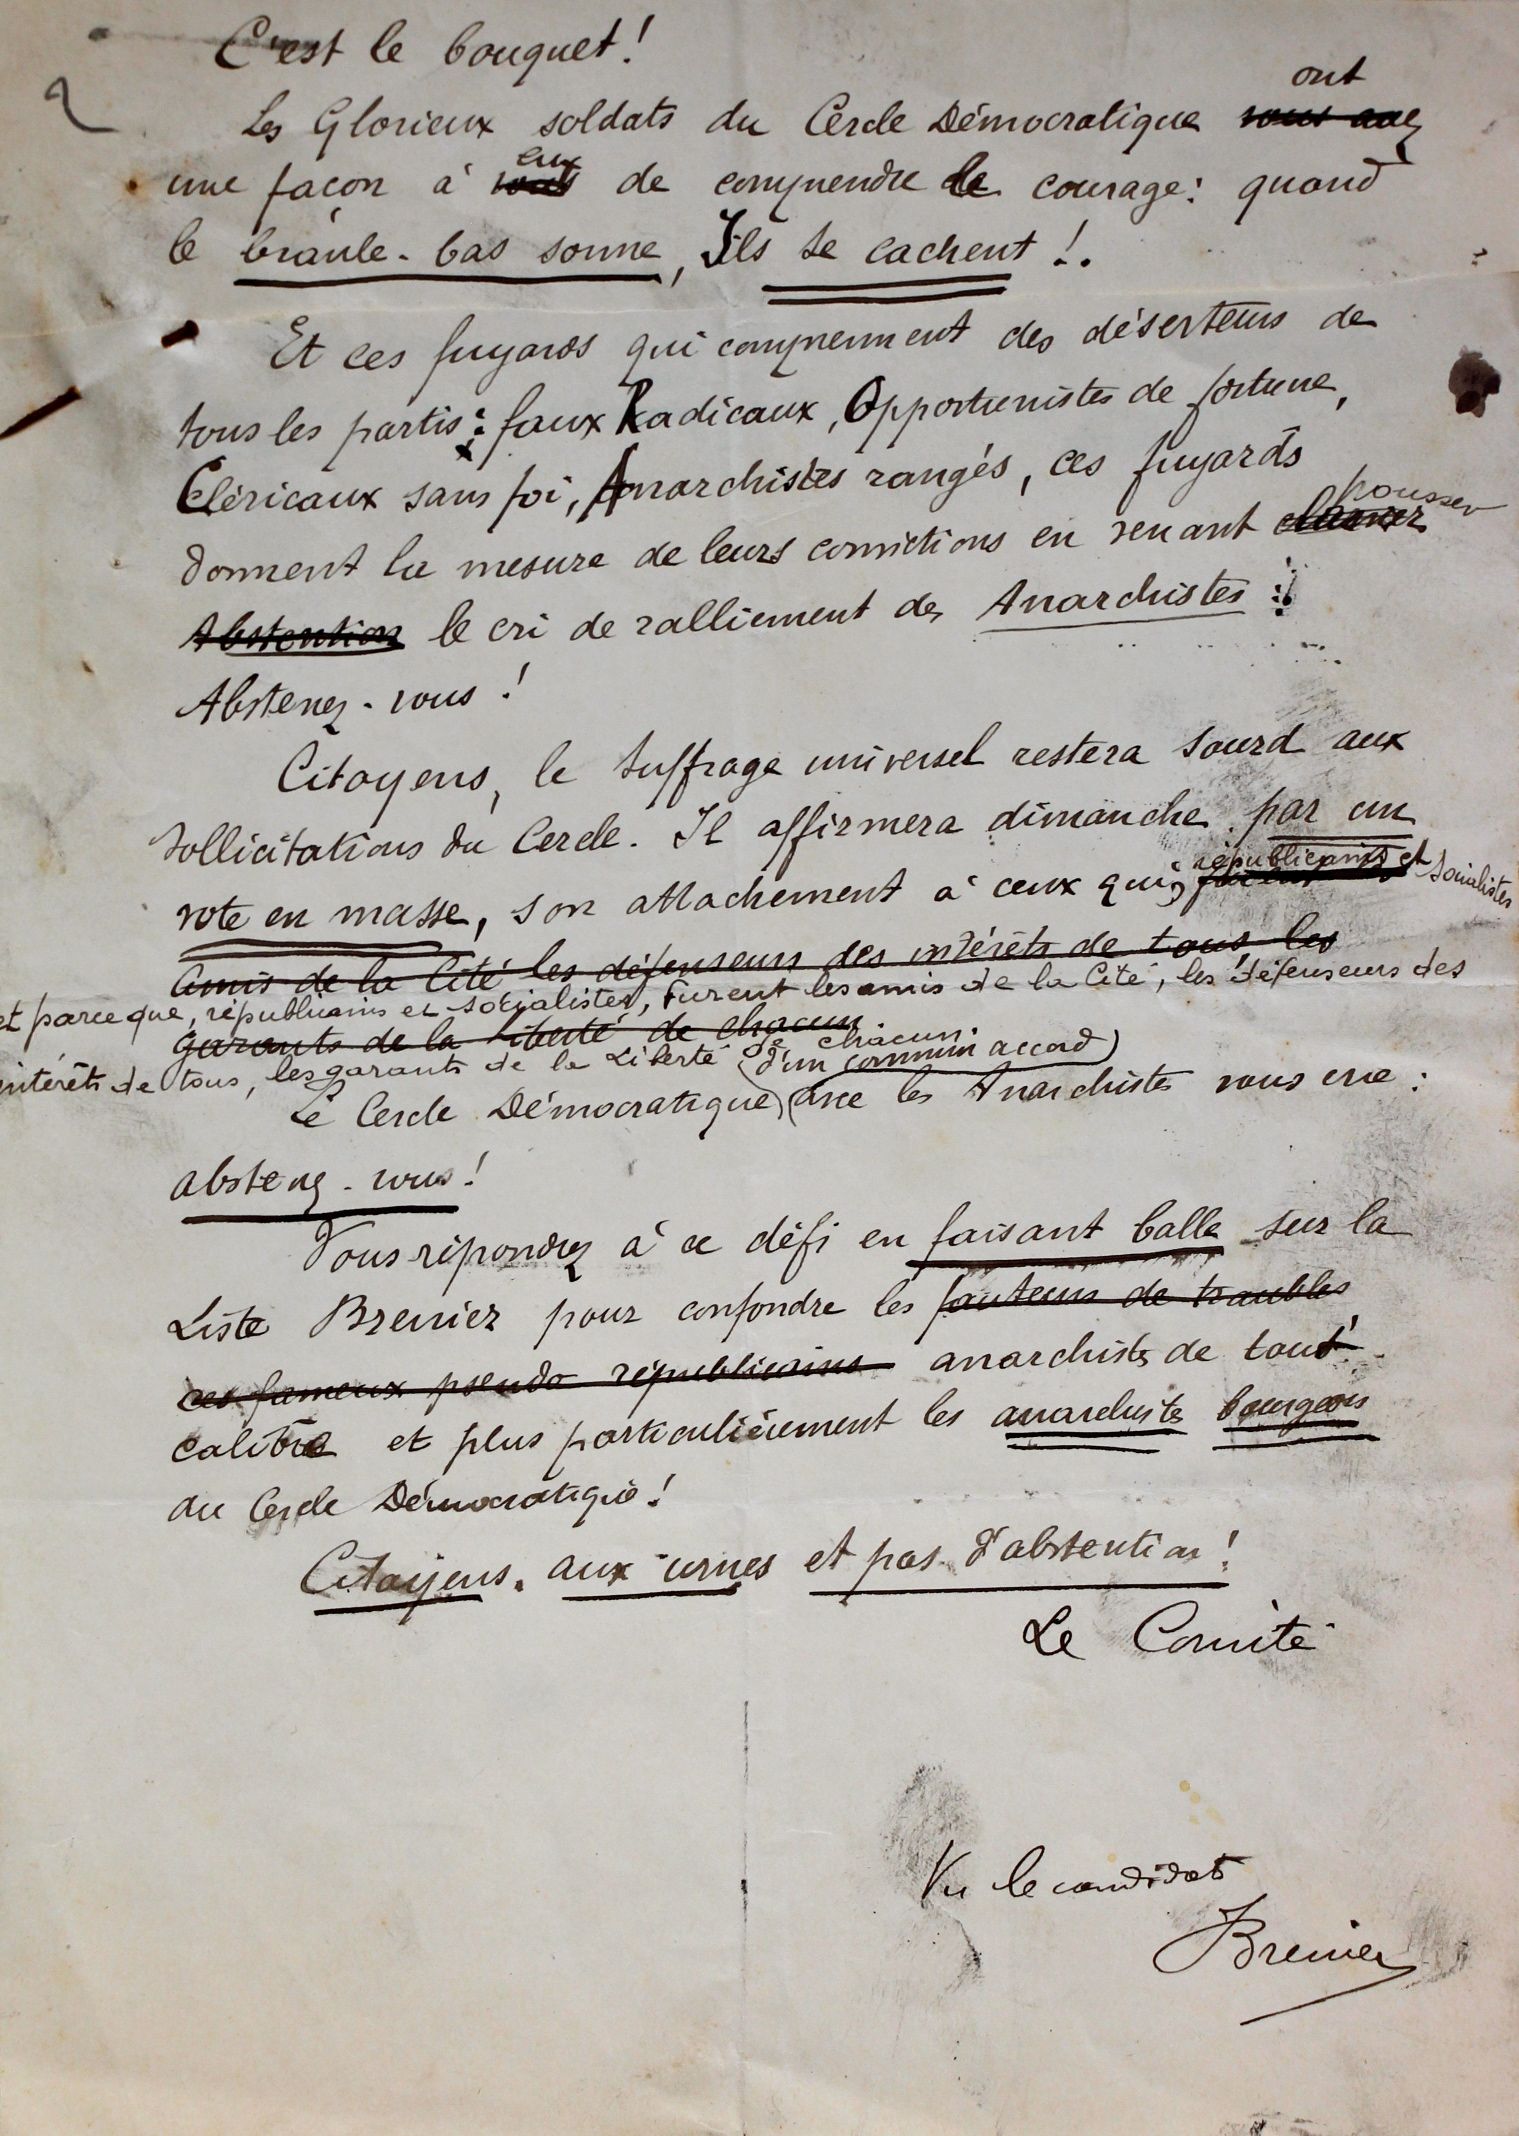 C'est le bouquet !
2
ont
Les Glorieux soldats du Cercle Démocratique vous avez
eux
une façon à vous de comprendre le courage : quand
le branle-bas sonne, Ils se cachent !.
Et ces fuyards qui comprennent des déserteurs de
tous les partis : faux Radicaux, Opportunistes de fortune,
Cléricaux sans foi, Anarchistes rangés, ces fuyards
pousser
donnent la mesure de leurs convictions en venant
Abstention le cri de ralliement des Anarchistes :
Abstenez-vous !
Citoyens, le suffrage universel restera sourd aux
sollicitations du Cercle. Il affirmera dimanche par un
républicains et socialistes
vote en masse, son attachement à ceux qui, furent les
amis de la Cité les défenseurs des intérêts de tous, les
et parce que, républicains et socialistes, furent les amis de la Cité, les défenseurs des
garants de la liberté de chacun
intérêts de tous, les garants de la Liberté de chacun.
(d'un commun accord)
Le Cercle Démocratique avec les Anarchistes vous crie :
abstenez-vous !
Vous répondrez à ce défi en faisant balle sur la
Liste Brenier pour confondre les fauteurs de troubles
ces fameux pseudo républicains anarchistes de tout
calibre et plus particulièrement les anarchistes bourgeois
du Cercle Démocratique !
Citoyens. aux urnes et pas d'abstention !
Le Comité
Vu le candidat
Brenier